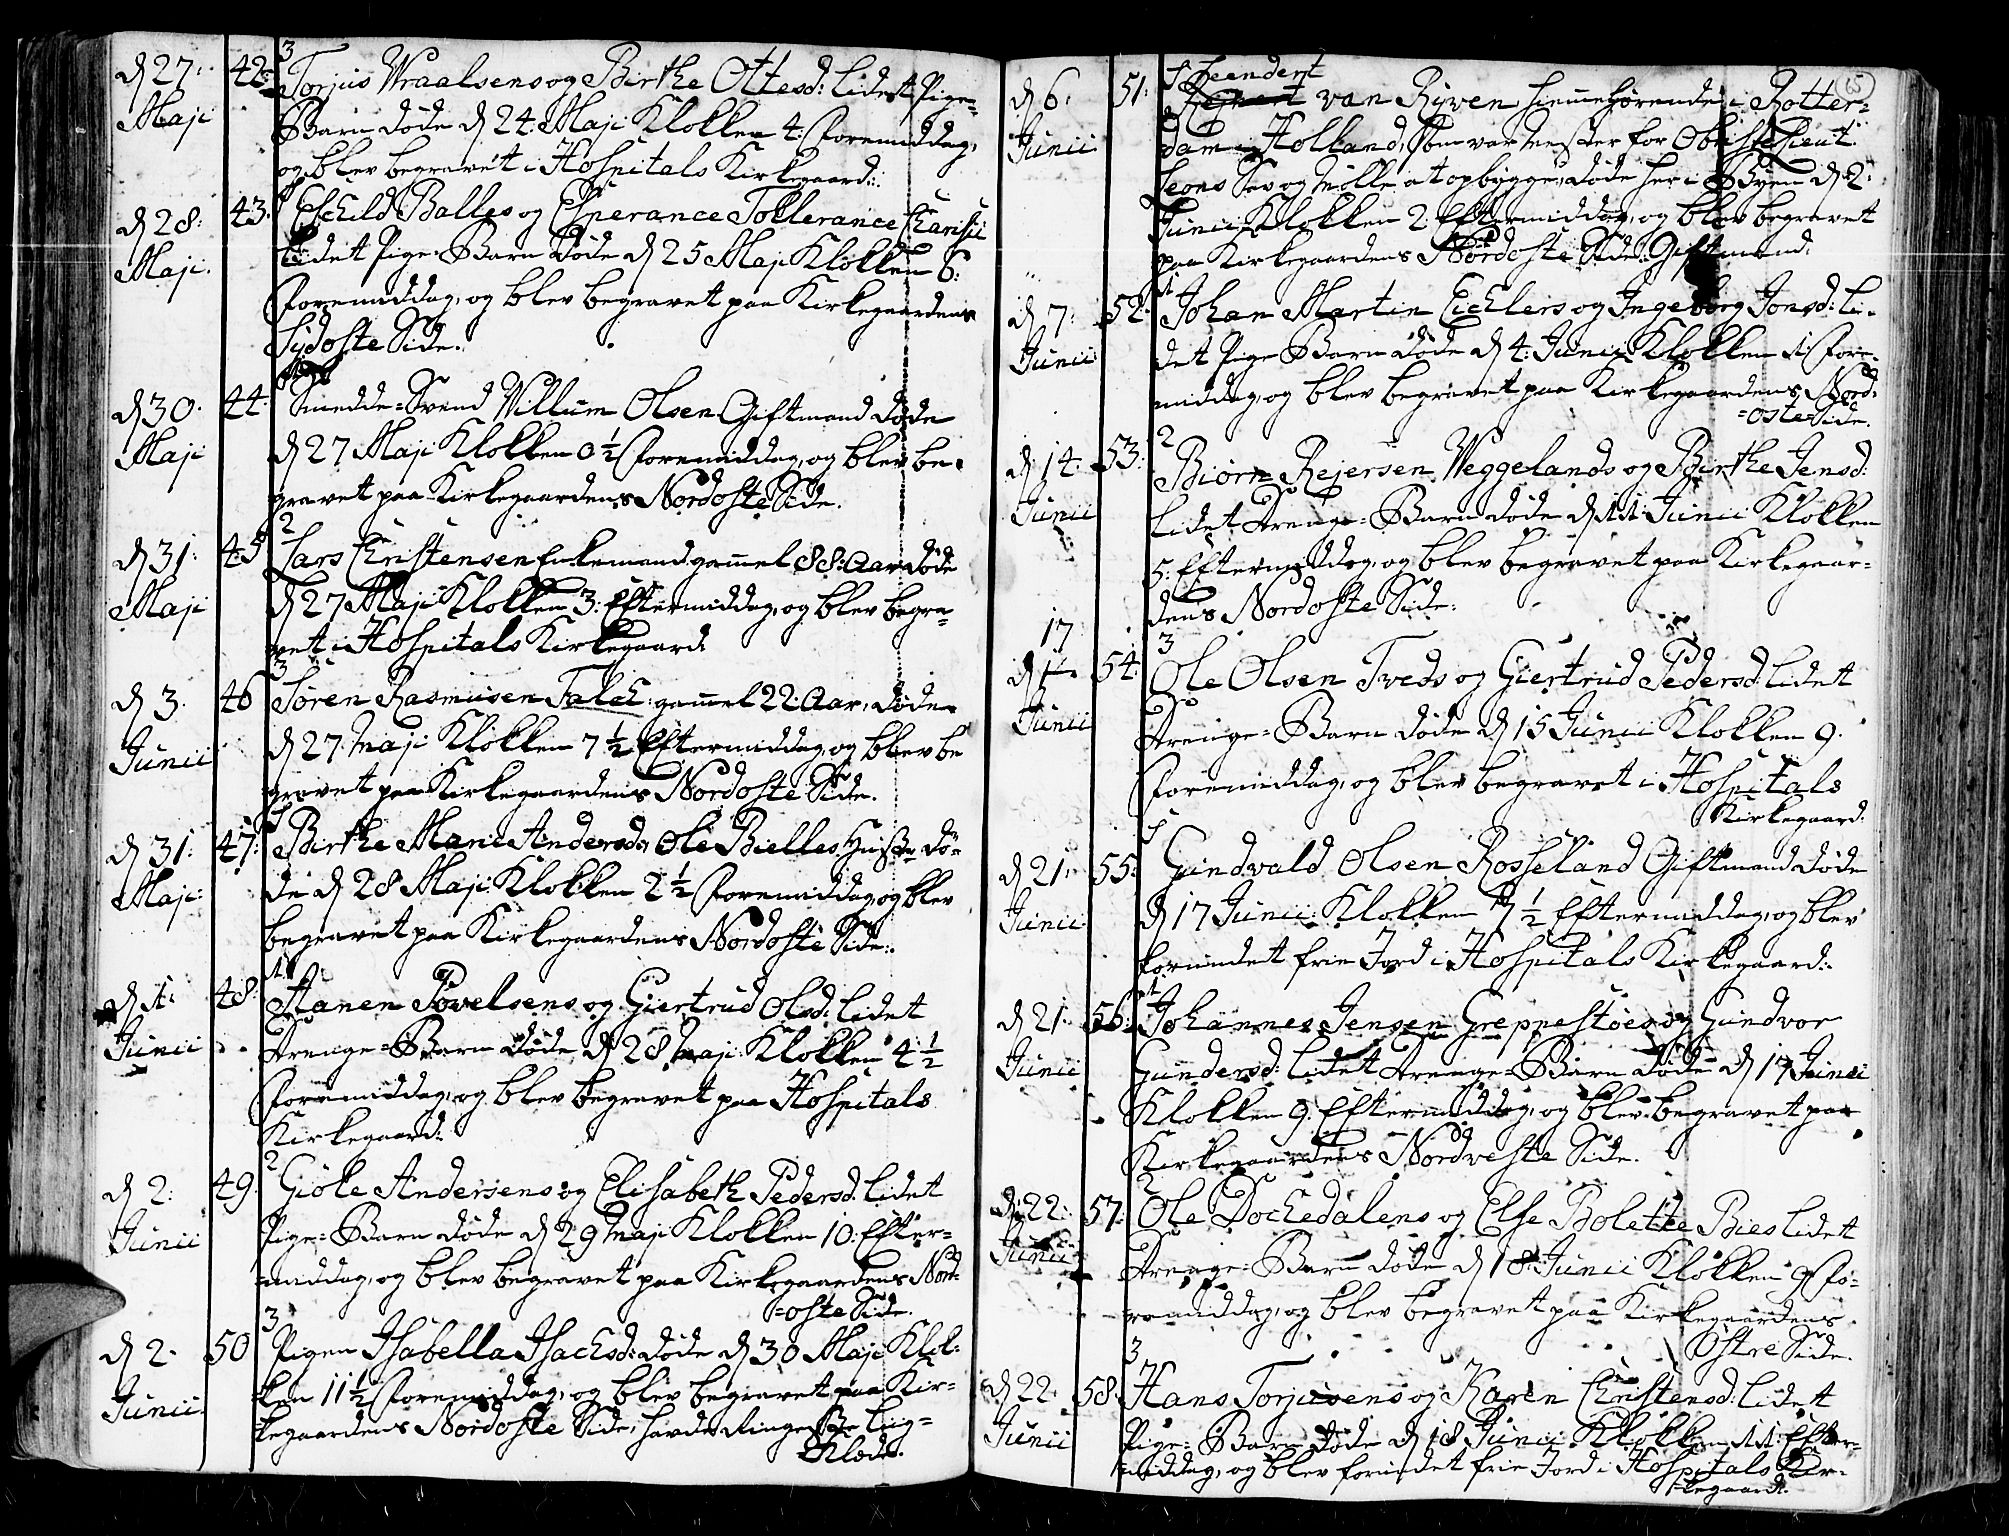 d 27: 42: 3 Torjus Wraalsens og Birthe Ottesd: lidet Pige=
Maji Barn døde d 24 Maji Klokken 4 formiddag,
og blev begravet i Hospitals Kirkegaard:
d 28: 43: Eschild Balles og Esperance Tollerance Charisii
Maji. lidet Pige=Barn døde d 25 Maji Klokken 6:
formiddag, og blev begravet paa Kirkegaardens
Sydoste Side.
d 30. 44. Smedde=Svend Villum Olsen Giftmand døde
Maji d 27 Maji Klokken 0½ formiddag, og blev be=
gravet paa Kirkegaardens Nordoste Side.
2
d 31: 45 Lars Christensen Enkemand gamel 88: Aar døde
Maji d 27 Maji Klokken 3: Eftermiddag, og blev begra=
vet i Hospitals Kirkegaard
3
d 3. 46 Søren Rasmusen Falch: gamel 22: Aar, døde
Junii d 27 Maji Klokken 7½ Eftermiddag, og blev be
gravet paa Kirkegaardens Nordoste Side.
d 31: 47: Birthe Marie Andersd: Ole Bielles Hustr dø=
Maji: de d 28 Maji Klokken 2½ formiddag, og blev
begravet paa Kirkegaardens Nordoste Side:
1
d 1: 48: Hanen Povelsens og Giertrud Olsd: lidet
Junii Drenge=Barn døde d 28 Maji Klokken 4½
formiddag, og blev begravet paa Hospitals
Kirkegaard:
2
d 2: 49: Giøle Andersens og Elisabeth Pedersd: lidet
Junii Pige=Barn døde d 29 Maji Klokken 10: Efter=
middag, og blev begravet paa Kirkegaardens Nord=
=oste Side.
3
d 2. 50 Pigen Isabella Isachsd: døde d 30 Maji Klok=
Junii. ken 11½ formiddag, og blev begravet paa Kir=
kegaardens Nordoste Side, havde Ringeste Liig=
Klæde.
65
Leendert
d 6: 51: van Ryven hiemehørende i Rotter=
Junii dam i Holland, som var Mester for Obriste Lieut:
Leons Sav og Mølle at opbygge, døde her i Byen d 2:
Junii Klokken 2: Eftermiddag, og blev begravet
paa Kirkegaardens Nordoste Side: Giftmand:
d 7: 52: Johan Martin Eichlers og Ingeborg Jonsd: li=
Junii det Pige Barn døde d 4: Junii Klokken 11 fore=
middag, og blev begravet paa Kirkegaardens Nord=
=oste=Side.
2
d 14: 53: Biørn Rejersen Weggelands og Birthe Jensd:
Junii lidet Drenge=Barn døde d 11: Junii Klokken
5: Eftermiddag, og blev begravet paa Kirkegaar=
dens Nordoste Side:
17 3
d 54 Ole Olsen Tveds og Giertrud Pedersd: lidet
Junii Drenge=Barn døde d 15 Junii Klokken 9.
formiddag, og blev begravet i Hospitals
Kirkegaard:
d 21: 55: Gundvald Olsen Rosseland Giftmand døde
Junii d 17 Junii Klokken 7½ Eftermiddag, og blev
forundet frie Jord i Hospitals Kirkegaard:
1
d 21 56: Johannes Jensen Greppestøes og Gundvor
Junii Gundersd: lidet Drenge=Barn døde d 17 Junii
Klokken 9: Eftermiddag, og blev begravet paa
Kirkegaardens Nordveste Side.
2
d 22: 57: Ole Dochedalens og Else Bolette Bies lidet
Junii Drenge=Barn døde d 18: Junii Klokken 9 fo=
rmiddag, og blev begravet paa Kirkegaardens
Ostre Side.
3
d 22. 58 Hans Torjusens og Karen Christensd: lidet
Junii Pige=Barn døde d 18 Junii Klokken 11: Efter=
middag, og blev forundet frie Jord i Hospitals Kir=
kegaard: